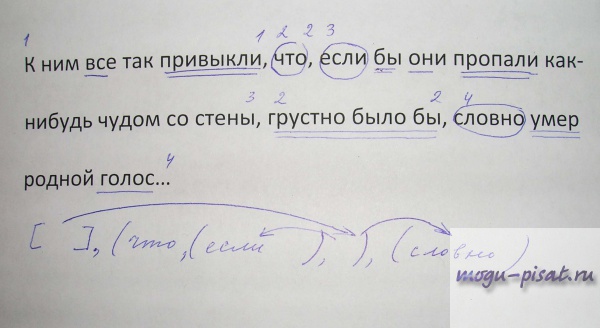 1 1 2 2 3
К ним все так привыкли, что, если бы они пропали как-
3 2 2 4
нибудь чудом со стены, грустно было бы, словно умер
родной голос...
4
[ ], (что, (если ), ), (словно )
mogu-pisat.ru